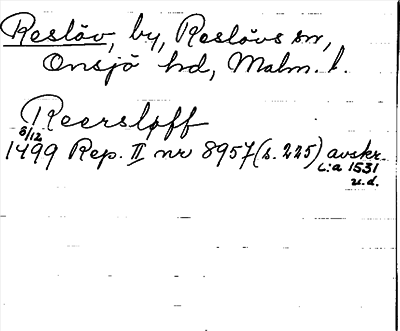 Reslöv, by, Reslövs sn,
Onsjö hd, Malm. l.
Reersløff
8/12
1499 Rep. II nr 8957 (s. 225) avskr.
c:a 1531
u.d.